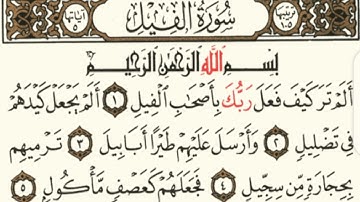 ترتيبها ١٠٥ سُورَةُ الفِيلِ آياتها ٥
بِسْمِ اللَّهِ الرَّحْمَٰنِ الرَّحِيمِ
أَلَمْ تَرَ كَيْفَ فَعَلَ رَبُّكَ بِأَصْحَٰبِ الْفِيلِ ١ أَلَمْ يَجْعَلْ كَيْدَهُمْ
فِي تَضْلِيلٍ ٢ وَأَرْسَلَ عَلَيْهِمْ طَيْرًا أَبَابِيلَ ٣ تَرْمِيهِم
بِحِجَارَةٍ مِّن سِجِّيلٍ ٤ فَجَعَلَهُمْ كَعَصْفٍ مَّأْكُولٍ ٥